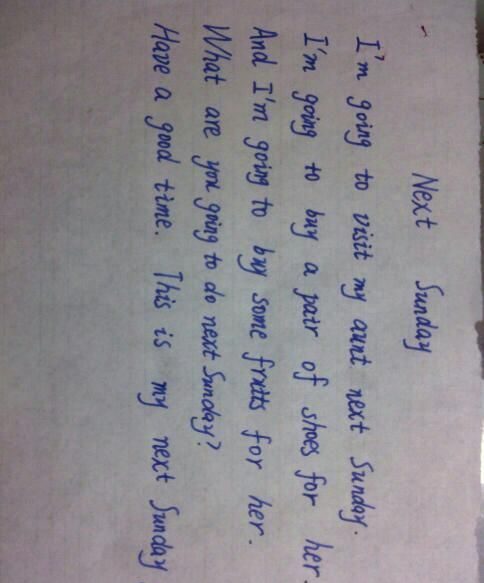 Next Sunday
I'm going to visit my aunt next Sunday.
I'm going to buy a pair of shoes for her.
And I'm going to buy some fruits for her.
What are you going to do next Sunday?
Have a good time. This is my next Sunday